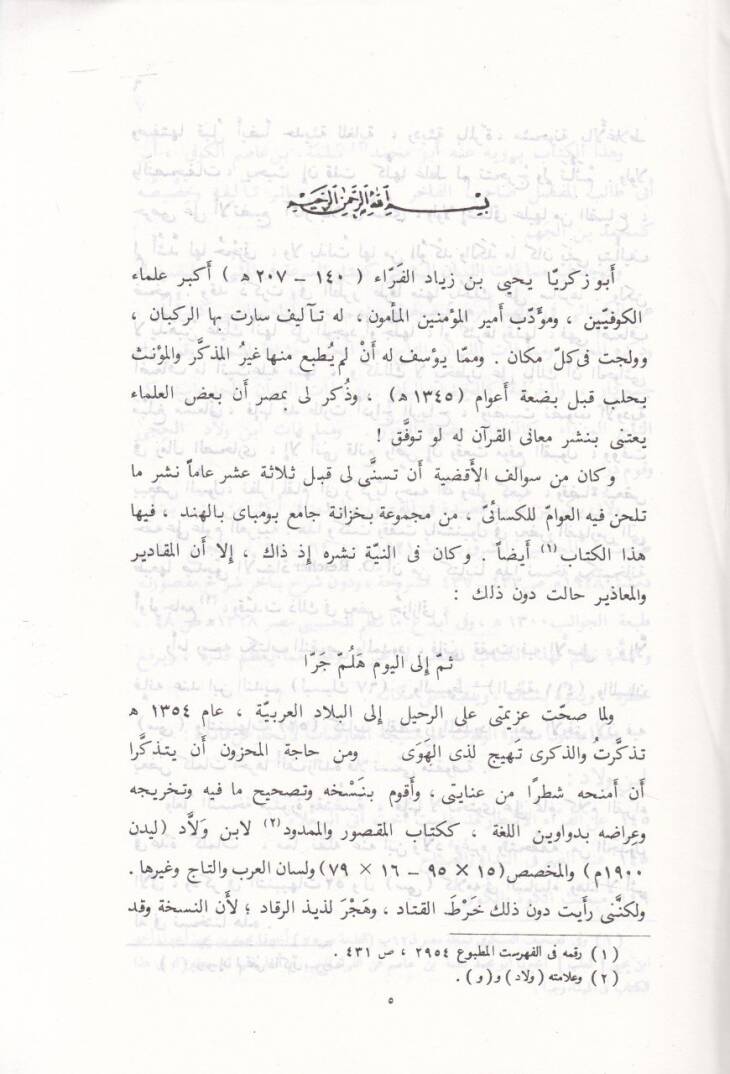 بسم الله الرحمن الرحيم
أبو زكريّا يحيى بن زياد الفَرّاء ( ١٤٠ – ٢٠٧ ه ) أكبر علماء
الكوفيّين ، ومؤدّب أمير المؤمنين المأمون ، له تآليف سارت بها الركبان ،
وولجت فى كلّ مكان . وممّا يؤسف له أنْ لم يُطبع منها غيرُ المذكَّر والمؤنث
بحلب قبل بضعة أعوام (١٣٤٥ ه) ، وذُكر لى بمصر أن بعض العلماء
يعتنى بنشر معانى القرآن له لو توفَّق !
وكان من سوالف الأقضية أن تسنَّى لى قبل ثلاثة عشر عاماً نشر ما
تلحن فيه العوامّ للكسائىّ ، من مجموعة بخزانة جامع بومباى بالهند ، فيها
هذا الكتاب(١) أيضاً . وكان فى النيّة نشره إذ ذاك ، إلا أن المقادير
والمعاذير حالت دون ذلك :
ثمّ إلى اليوم هَلُمّ جَرّا
ولما صحّت عزيمتى على الرحيل إلى البلاد العربيّة ، عام ١٣٥٤ ه
تذكَّرتُ والذكرى تَهيج لذى الهَوَى ومن حاجة المحزون أن يتذكَّرا
أن أمنحه شطرًا من عنايتى ، وأقوم بنَسْخه وتصحيح ما فيه وتخريجه
وعِراضه بدواوين اللغة ، ككتاب المقصور والممدود(٢) لابن وَلاَّد (ليدن
١٩٠٠م) والمخصص(١٥ × ٩٥ – ١٦ × ٧٩) ولسان العرب والتاج وغيرها .
ولكنَّنى رأيت دون ذلك خَرْطَ القتاد ، وهَجْرَ لذيذ الرقاد ؛ لأن النسخة وقد
(١) رقمه فى الفهرست المطبوع ٢٩٥٤ ، ص ٤٣١ .
(٢) وعلامته (ولاد) و(و) .
٥